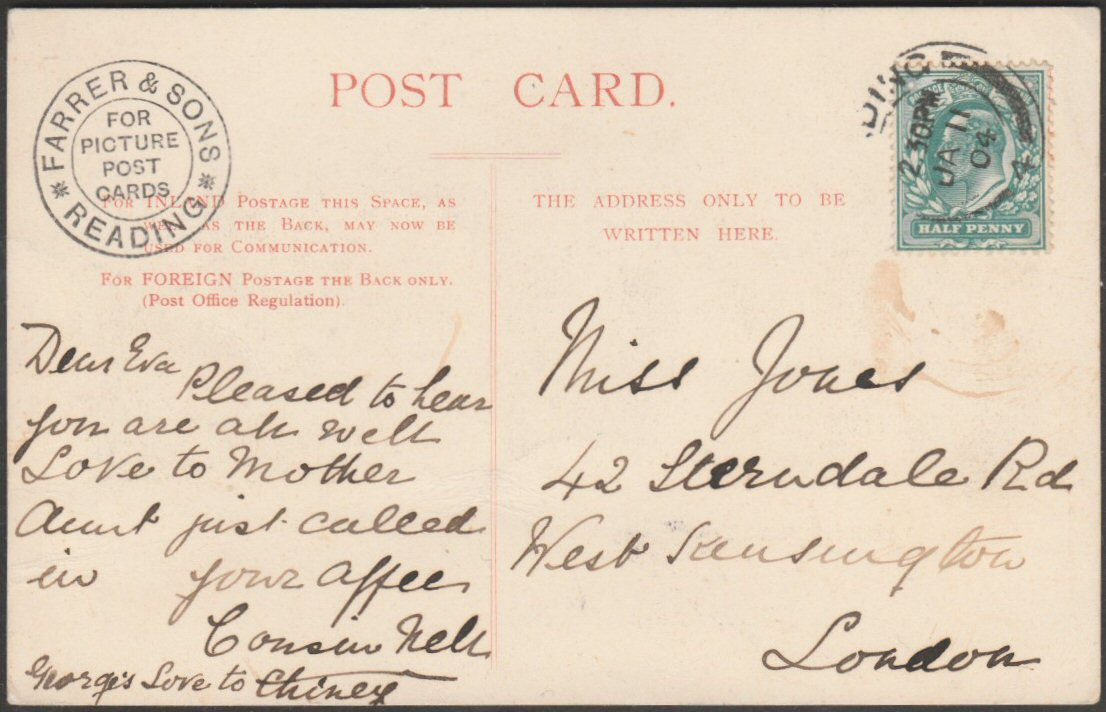 POST CARD.
FARRER & SONS
READING
FOR
PICTURE
POST
CARDS
FOR INLAND POSTAGE THIS SPACE, AS
WELL AS THE BACK, MAY NOW BE
USED FOR COMMUNICATION.
FOR FOREIGN POSTAGE THE BACK ONLY.
(Post Office Regulation).
THE ADDRESS ONLY TO BE
WRITTEN HERE.
DING
2 30PM
JA 11
04
4
HALF PENNY
Dear Eva
Pleased to hear
you are all well
Love to Mother
Aunt just called
in your Affec
Cousin Nell
George's Love to
Miss Jones
42 Sterndale Rd
West Kensington
London